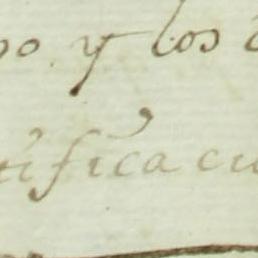 po y los
tifica cu